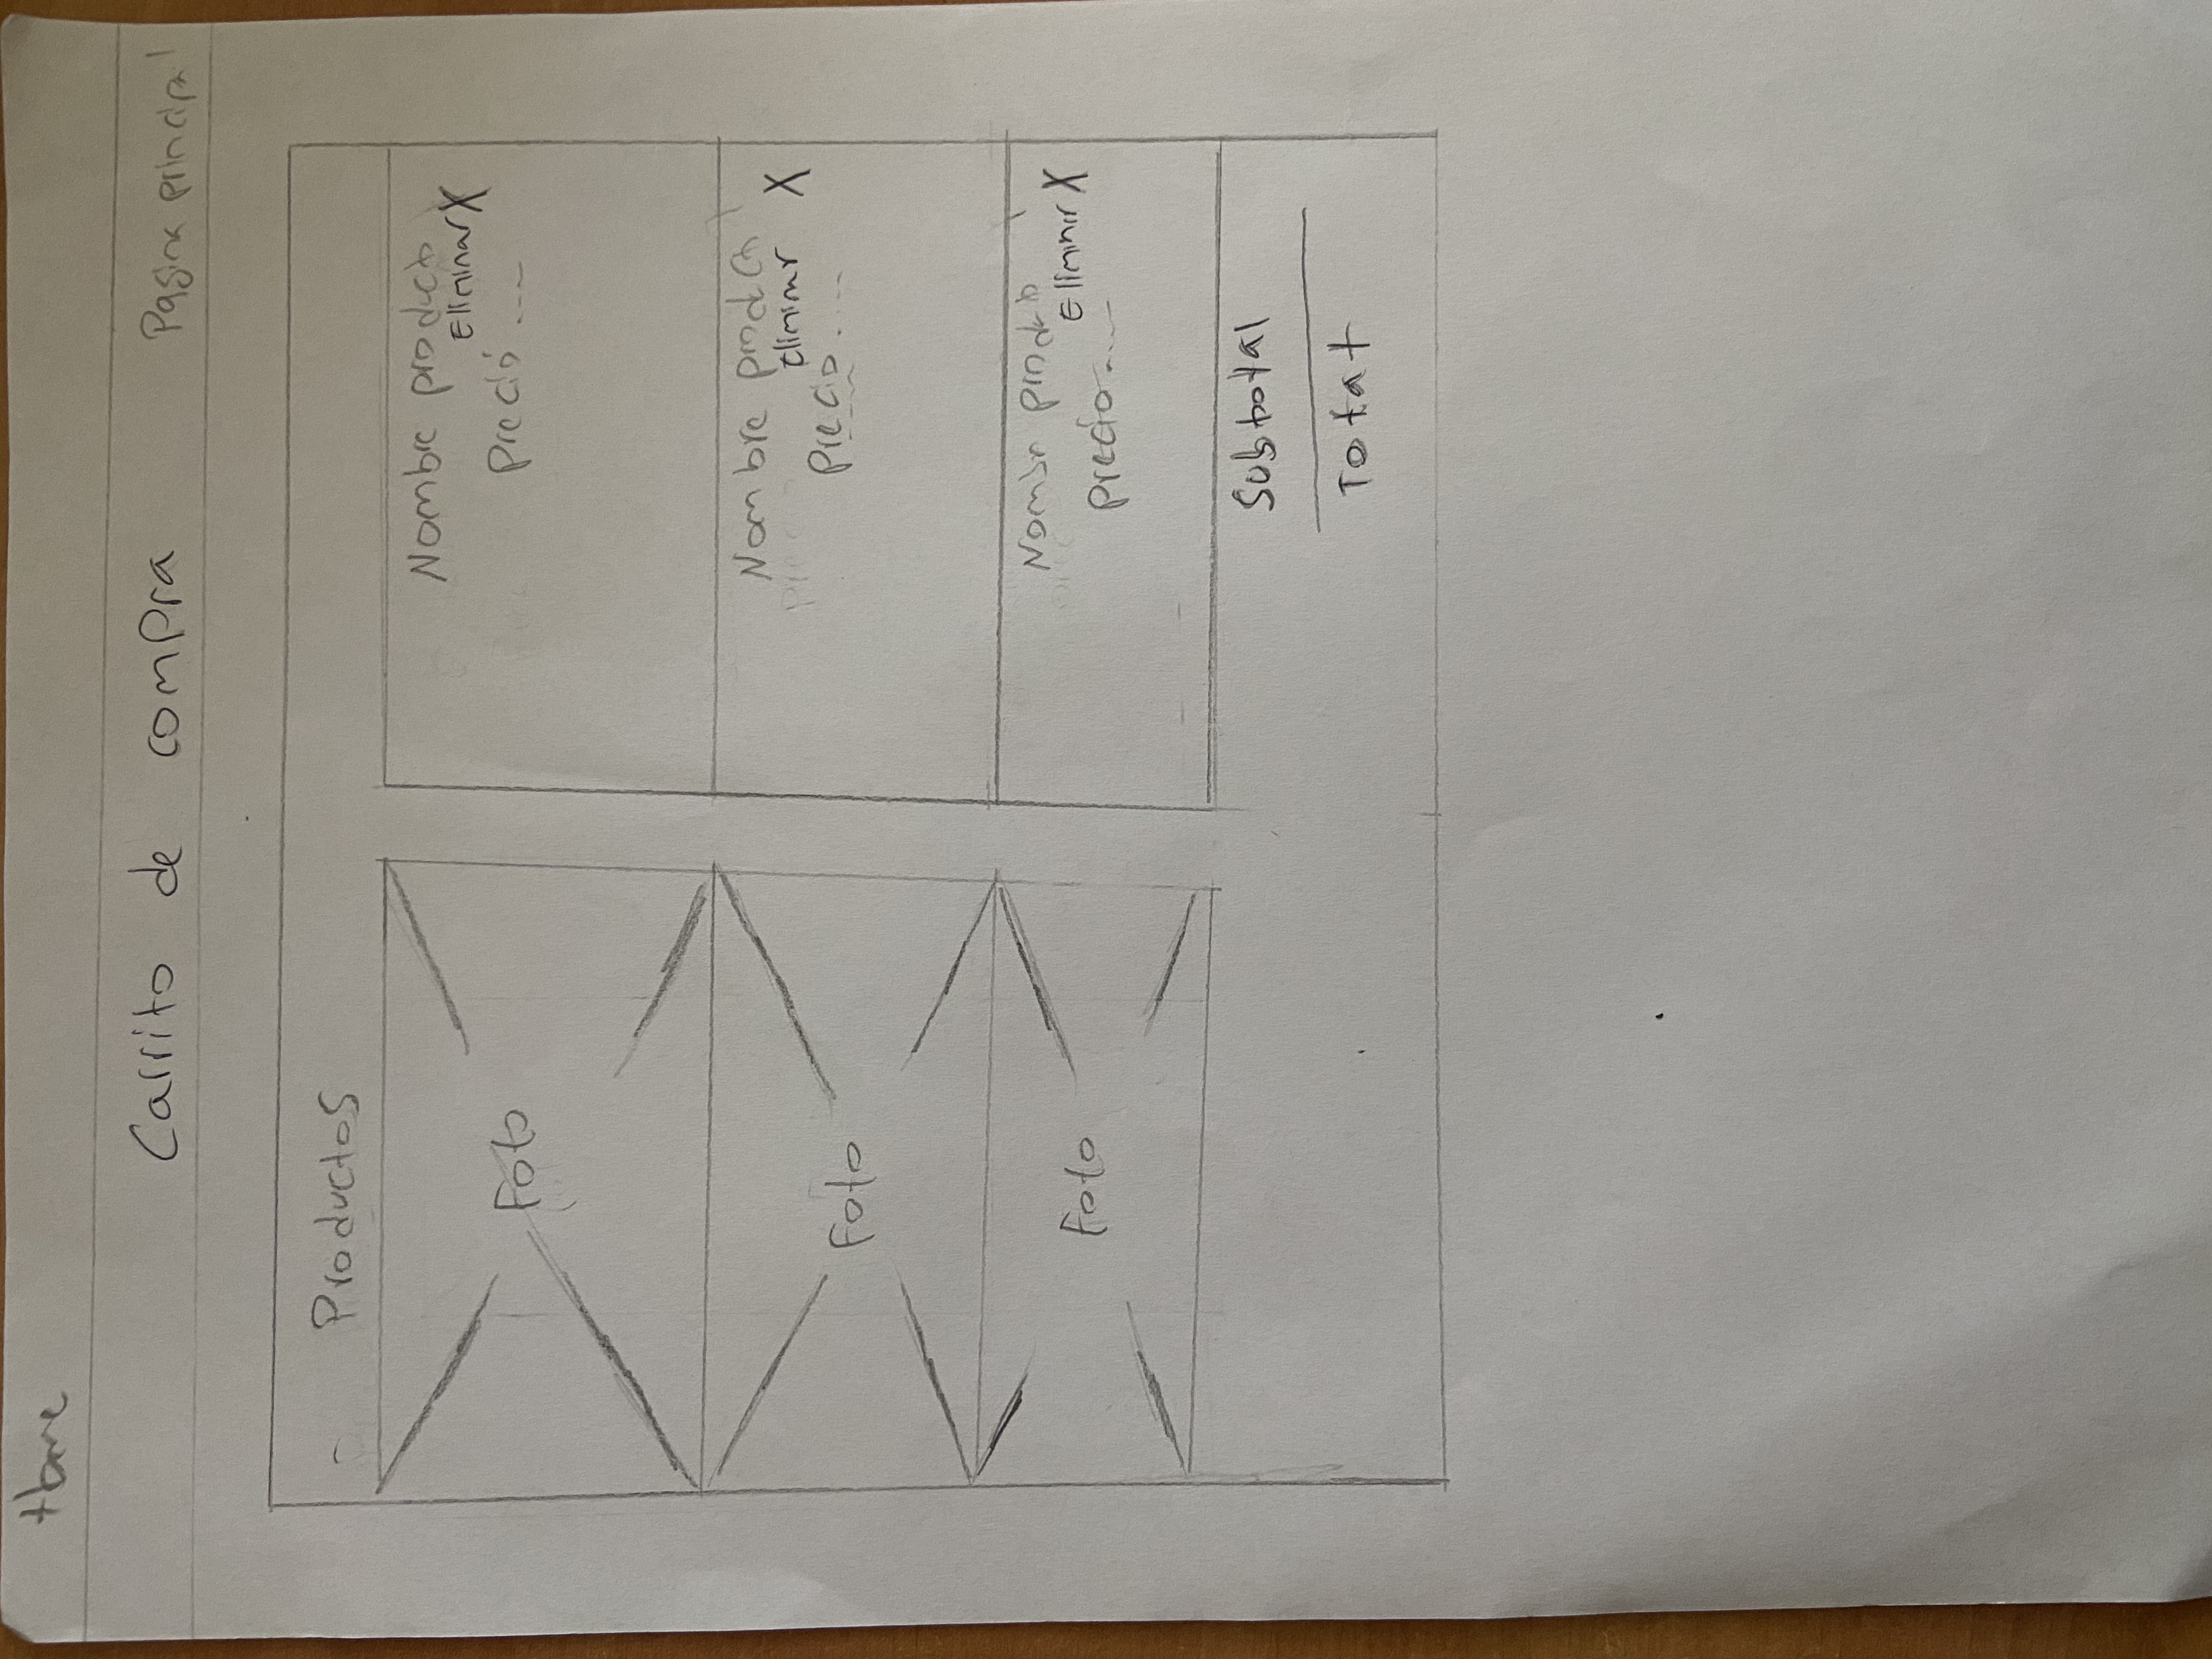 Home
Carrito de compra Pagina principal
- Productos
Foto
Nombre producto
Eliminar X
Precio ....
Foto
Nombre producto
Eliminar X
Precio ....
Foto
Nombre producto
Eliminar X
Precio ....
Subtotal
Total